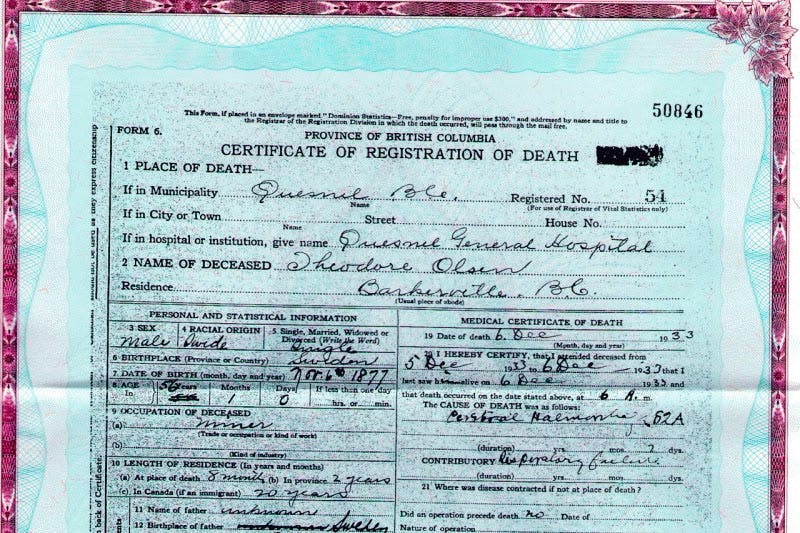 50846
This Form, if placed in an envelope marked "Dominion Statistics—Free, penalty for improper use $300," and addressed by name and title to
the Registrar of the Registration Division in which the death occurred, will pass through the mail free.
FORM 6.
PROVINCE OF BRITISH COLUMBIA
CERTIFICATE OF REGISTRATION OF DEATH
1 PLACE OF DEATH—
If in Municipality Quesnil B.C. Registered No. 51
Name (For use of Registrar of Vital Statistics only)
If in City or Town Street House No.
Name
If in hospital or institution, give name Quesnil General Hospital
2 NAME OF DECEASED Theodore Olsen
Residence Barkerville. B.C.
(Usual place of abode)
PERSONAL AND STATISTICAL INFORMATION
3 SEX 4 RACIAL ORIGIN 5 Single, Married, Widowed or
Divorced (Write the Word)
Male Swide Single
6 BIRTHPLACE (Province or Country) Sweden
7 DATE OF BIRTH (month, day and year) Nov 6th 1877
8 AGE In 56 years Months Days If less than one day
1 0 hrs. or min.
9 OCCUPATION OF DECEASED
(a) miner
(Trade or occupation or kind of work)
(b)
(Kind of industry)
10 LENGTH OF RESIDENCE (In years and months)
(a) At place of death 8 months (b) In province 2 years
(c) In Canada (if an immigrant) 20 years
11 Name of father unknown
12 Birthplace of father Sweden
MEDICAL CERTIFICATE OF DEATH
19 Date of death 6. Dec 1933
(Month, day and year)
20 I HEREBY CERTIFY, that I attended deceased from
5 Dec 1933 to 6 Dec 1933 that I
last saw h alive on 6 Dec 1933 and
that death occurred on the date stated above, at 6 A. m.
The CAUSE OF DEATH was as follows:
Cerebral Haemorrhage 82A
(duration) yrs. mos. 2 dys.
CONTRIBUTORY Respiratory failure
(duration) yrs. mos. dys.
21 Where was disease contracted if not at place of death?
Did an operation precede death no Date of
Nature of operation
back of Certificate.